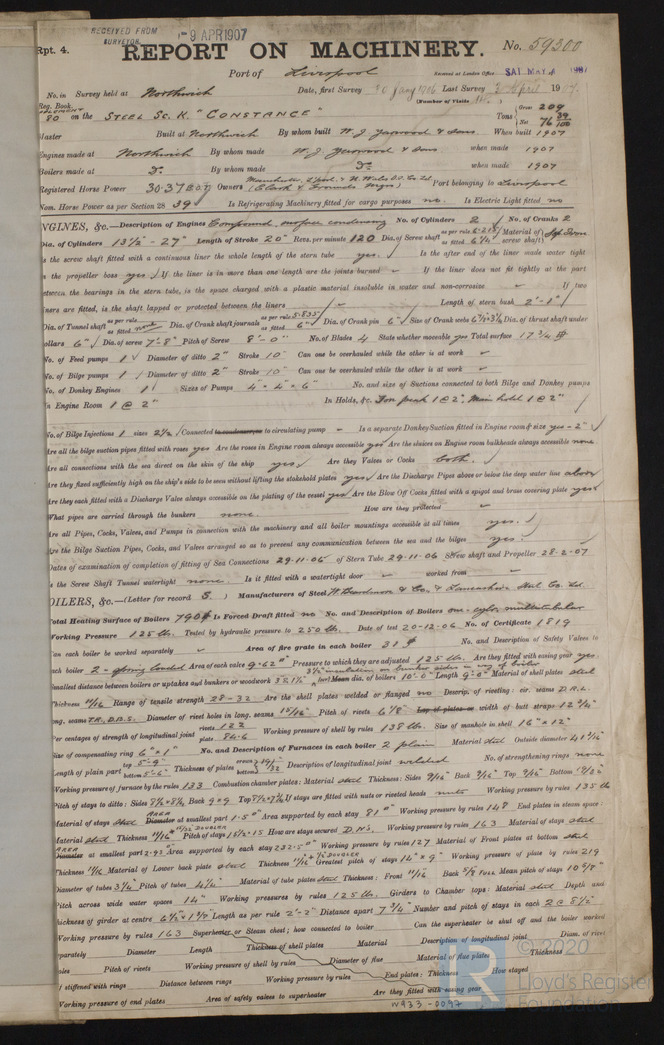 RECEIVED FROM SURVEYOR 9 APR 1907
Rpt. 4. REPORT ON MACHINERY. No. 59300
Port of Liverpool Received at London Office SAT MAY 4 1907
No. in Survey held at Northwich Date, first Survey 30 Jany 1906 Last Survey 3 April 1907
Reg. Book. (Number of Visits )
80 on the STEEL SC. K. "CONSTANCE" Tons Gross 209 Net 76 39/100
Master Built at Northwich By whom built W. J. Yarwood & Sons When built 1907
Engines made at Northwich By whom made W. J. Yarwood & Sons when made 1907
Boilers made at Do. By whom made Do. when made 1907
Registered Horse Power 30.37 B.O.T Owners Manchester, L'pool & N. Wales S.S. Co. Ld. (Clark & Grounds Mgrs) Port belonging to Liverpool
Nom. Horse Power as per Section 28 39 Is Refrigerating Machinery fitted for cargo purposes no. Is Electric Light fitted no
ENGINES, &c.—Description of Engines Compound surface condensing No. of Cylinders 2 No. of Cranks 2
Dia. of Cylinders 13½"-27" Length of Stroke 20" Revs. per minute 120 Dia. of Screw shaft as per rule as fitted 6¼" Material of screw shaft
Is the screw shaft fitted with a continuous liner the whole length of the stern tube yes. Is the after end of the liner made water tight
in the propeller boss yes If the liner is in more than one length are the joints burned If the liner does not fit tightly at the part
between the bearings in the stern tube, is the space charged with a plastic material insoluble in water and non-corrosive If two
liners are fitted, is the shaft lapped or protected between the liners Length of stern bush 2'-1"
Dia. of Tunnel shaft as per rule as fitted none Dia. of Crank shaft journals as per rule 5.835 as fitted 6" Dia. of Crank pin 6" Size of Crank webs Dia. of thrust shaft under
collars 6" Dia. of screw 7'-8" Pitch of Screw 8'-0" No. of Blades 4 State whether moveable yes Total surface 17¾
No. of Feed pumps 1 Diameter of ditto 2" Stroke 10" Can one be overhauled while the other is at work
No. of Bilge pumps 1 Diameter of ditto 2" Stroke 10" Can one be overhauled while the other is at work
No. of Donkey Engines 1 Sizes of Pumps 4" × 4" × 6" No. and size of Suctions connected to both Bilge and Donkey pumps
In Engine Room 1 @ 2" In Holds, &c. Fore peak 1 @ 2", Main hold 1 @ 2"
No. of Bilge Injections 1 sizes 2½ Connected to circulating pump Is a separate Donkey Suction fitted in Engine room & size yes - 2"
Are all the bilge suction pipes fitted with roses yes Are the roses in Engine room always accessible yes Are the sluices on Engine room bulkheads always accessible none
Are all connections with the sea direct on the skin of the ship yes. Are they Valves or Cocks both.
Are they fixed sufficiently high on the ship's side to be seen without lifting the stokehold plates yes Are the Discharge Pipes above or below the deep water line above
Are they each fitted with a Discharge Valve always accessible on the plating of the vessel yes Are the Blow Off Cocks fitted with a spigot and brass covering plate yes
What pipes are carried through the bunkers none. How are they protected
Are all Pipes, Cocks, Valves, and Pumps in connection with the machinery and all boiler mountings accessible at all times yes.
Are the Bilge Suction Pipes, Cocks, and Valves arranged so as to prevent any communication between the sea and the bilges yes.
Dates of examination of completion of fitting of Sea Connections 29-11-06 of Stern Tube 29-11-06 Screw shaft and Propeller 28-2-07
Is the Screw Shaft Tunnel watertight none. Is it fitted with a watertight door worked from
BOILERS, &c.—(Letter for record S.) Manufacturers of Steel W. Beardmore & Co. & Lancashire Steel Co. Ld.
Total Heating Surface of Boilers 790 Is Forced Draft fitted no No. and Description of Boilers one cylr. multitubular
Working Pressure 125 lbs. Tested by hydraulic pressure to 250 lbs. Date of test 20-12-06 No. of Certificate 1819
Can each boiler be worked separately Area of fire grate in each boiler 31 No. and Description of Safety Valves to
each boiler 2 - spring loaded Area of each valve 9.62" Pressure to which they are adjusted 125 lbs. Are they fitted with easing gear yes.
Smallest distance between boilers or uptakes and bunkers or woodwork Mean dia. of boilers 10'-0" Length 9'-0" Material of shell plates steel
Thickness 11/16 Range of tensile strength 28-32 Are the shell plates welded or flanged no Descrip. of riveting: cir. seams D.R.L.
long. seams T.R.D.B.S. Diameter of rivet holes in long. seams 15/16 Pitch of rivets 6⅛ width of butt straps 12¾"
Per centages of strength of longitudinal joint rivets 122 plate 84.6 Working pressure of shell by rules 138 lbs. Size of manhole in shell 16" × 12"
Size of compensating ring 6" × 1" No. and Description of Furnaces in each boiler 2 plain Material steel Outside diameter
Length of plain part top 5'-9" bottom 5'-6" Thickness of plates Description of longitudinal joint welded No. of strengthening rings none
Working pressure of furnace by the rules 133 Combustion chamber plates: Material steel Thickness: Sides 9/16 Back 9/16 Top 9/16 Bottom
Pitch of stays to ditto: Sides Back 9 × 9 Top If stays are fitted with nuts or riveted heads nuts Working pressure by rules 135 lbs
Material of stays steel Area at smallest part 1.5" Area supported by each stay 81" Working pressure by rules 148 End plates in steam space:
Material steel Thickness 11/16 DOUBLER Pitch of stays 15½ × 15 How are stays secured D.N's. Working pressure by rules 163 Material of stays steel
AREA at smallest part 2.93 Area supported by each stay 232.5 Working pressure by rules 127 Material of Front plates at bottom steel
Thickness 11/16 Material of Lower back plate steel Thickness 11/16 DOUBLER Greatest pitch of stays 14" × 9" Working pressure of plate by rules 219
Diameter of tubes 3¼" Pitch of tubes Material of tube plates steel Thickness: Front 11/16 Back 5/8 FULL Mean pitch of stays
Pitch across wide water spaces 14" Working pressures by rules 125 lbs. Girders to Chamber tops: Material steel Depth and
thickness of girder at centre Length as per rule 2'-2" Distance apart 7¾" Number and pitch of stays in each 2 @ 8½"
Working pressure by rules 163 Superheater or Steam chest; how connected to boiler Can the superheater be shut off and the boiler worked
separately Diameter Length Thickness of shell plates Material Description of longitudinal joint Diam. of rivet
holes Pitch of rivets Working pressure of shell by rules Diameter of flue Material of flue plates Thickness
If stiffened with rings Distance between rings Working pressure by rules End plates: Thickness How stayed
Working pressure of end plates Area of safety valves to superheater Are they fitted with easing gear
W933-0097
© 2020
LR
Lloyd's Register
Foundation